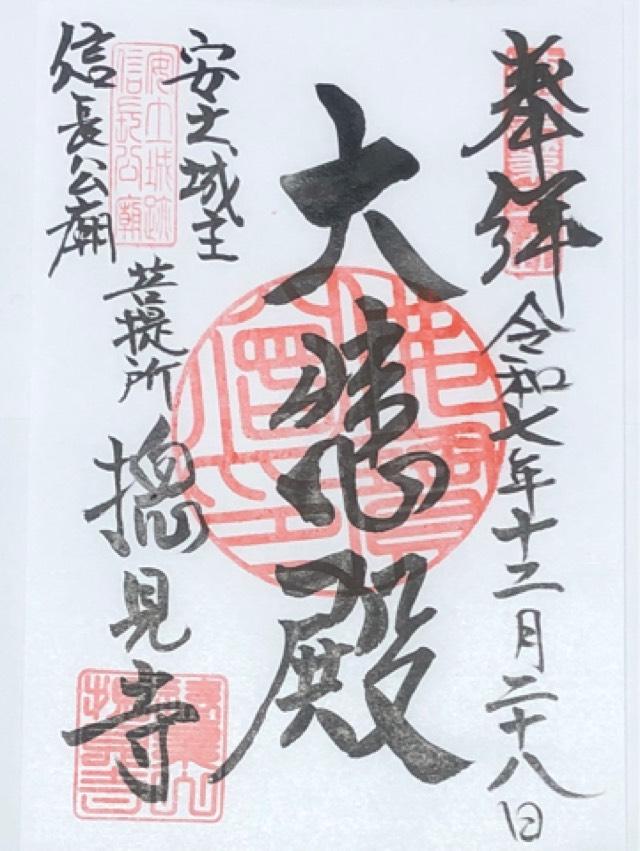 奉拝
令和七年十二月二十八日
大悲殿
安土城主
信長公廟
菩提所
摠見寺
安土城跡
信長公廟